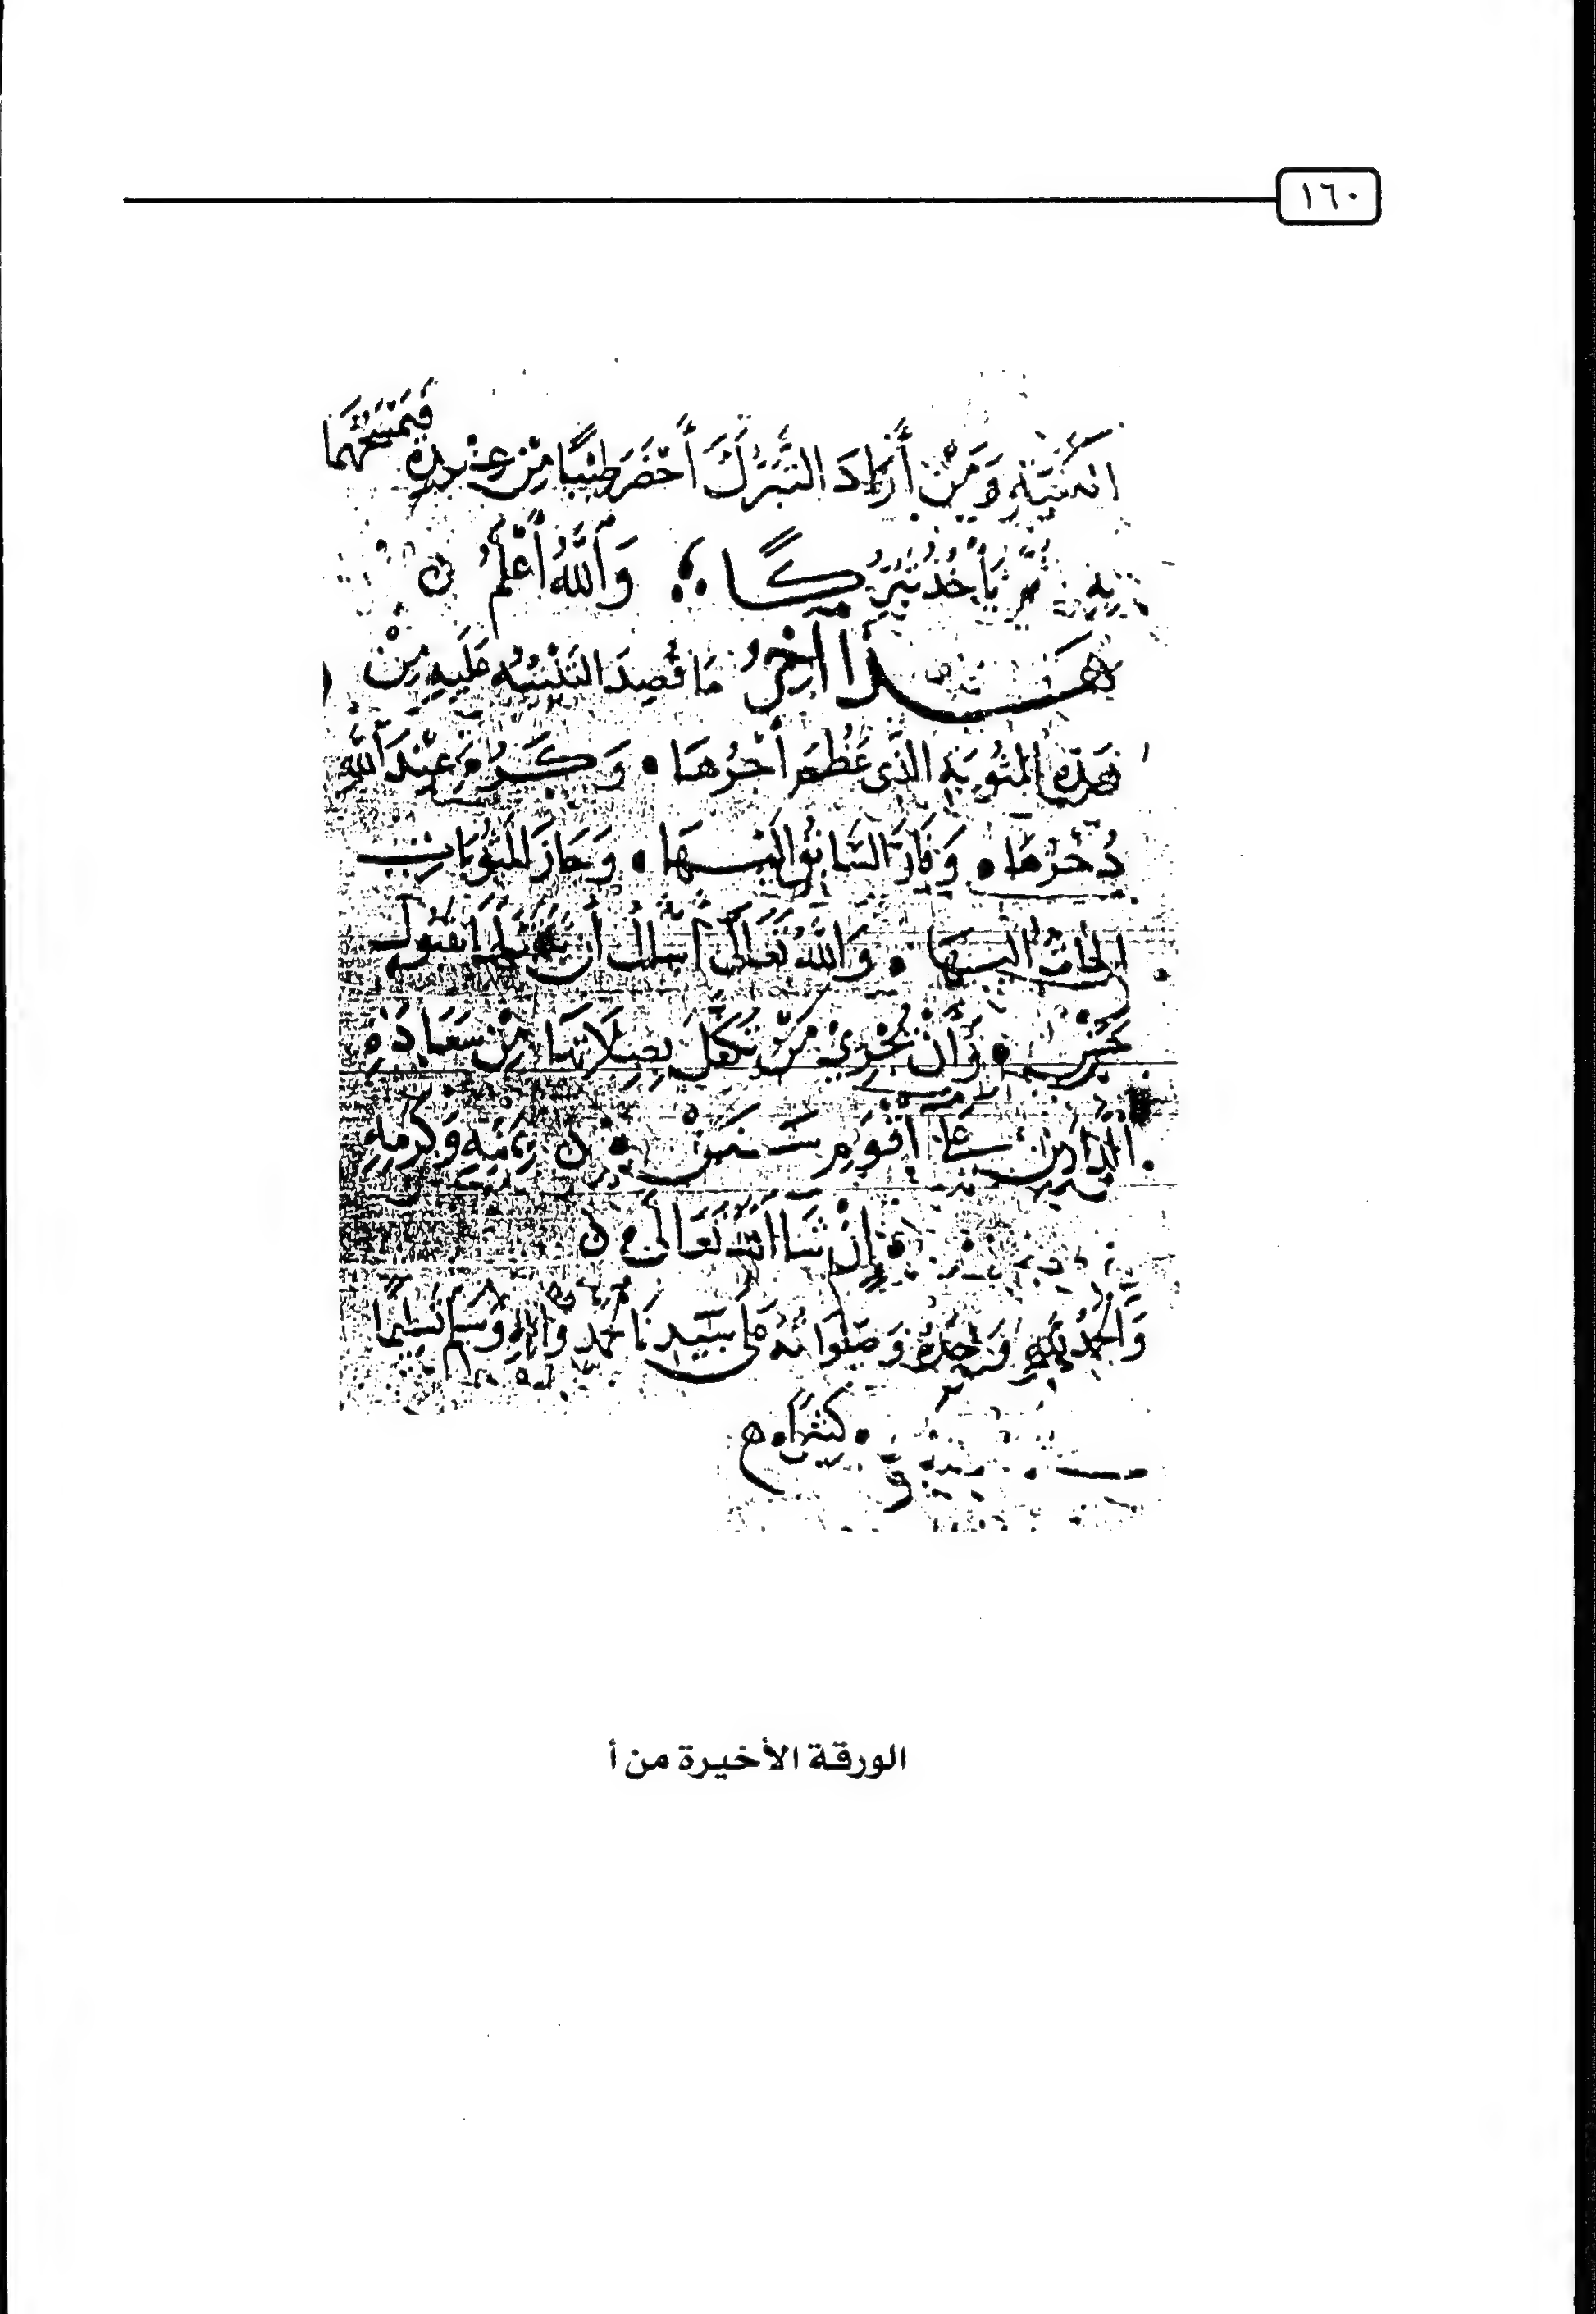 ١٦٠
وَمَنْ أَرَادَ التَّبَرُّكَ أَحْضَرَ طِيْبًا مِنْ عِنْدِهِ فَيَمْسَحُهَا
بِهِ ثُمَّ يَأْخُذُ تَبَرُّكًا وَاللَّهُ أَعْلَمُ
هَذَا آخِرُ مَا قُصِدَ التَّنْبِيْهُ عَلَيْهِ مِنْ
هَذِهِ المَثُوبَةِ الَّذِى عَظُمَ أَجْرُهَا وَكَرُمَ عِنْدَ اللَّهِ
ذُخْرُهَا وَفَازَ السَّابِقُ الَيْهَا وَحَازَ المَثُوبَاتِ
الحَاثُّ الَيْهَا وَاللَّهُ تَعَالَى أَسْأَلُ أَنْ
وَأَنْ يُجْزِيَ مَنْ تَكَفَّلَ بِصِلَاتِهَا مِنْ سَعَادَةِ
الدَّارَيْنِ عَلَى أَقْوَمِ سَنَنٍ بِمَنِّهِ وَكَرَمِهِ
إِنْ شَا اللَّهُ تَعَالَى
وَالحَمْدُ لِلَّهِ وَحْدَهُ وَصَلَوَاتُهُ عَلَى سَيِّدِنَا مُحَمَّدٍ وَآلِهِ وَسَلَّمَ تَسْلِيمًا
كَثِيْرًا
الورقة الأخيرة من أ